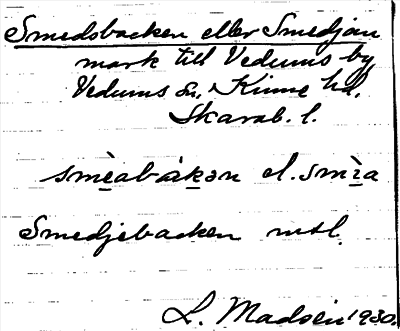 Smedsbacken eller Smedjan
mark till Vedums by
Vedums sn. Kinne hd.
Skarab. l.
smèabàkən el. smìa
Smedjebacken msl.
L. Madsén 1930.